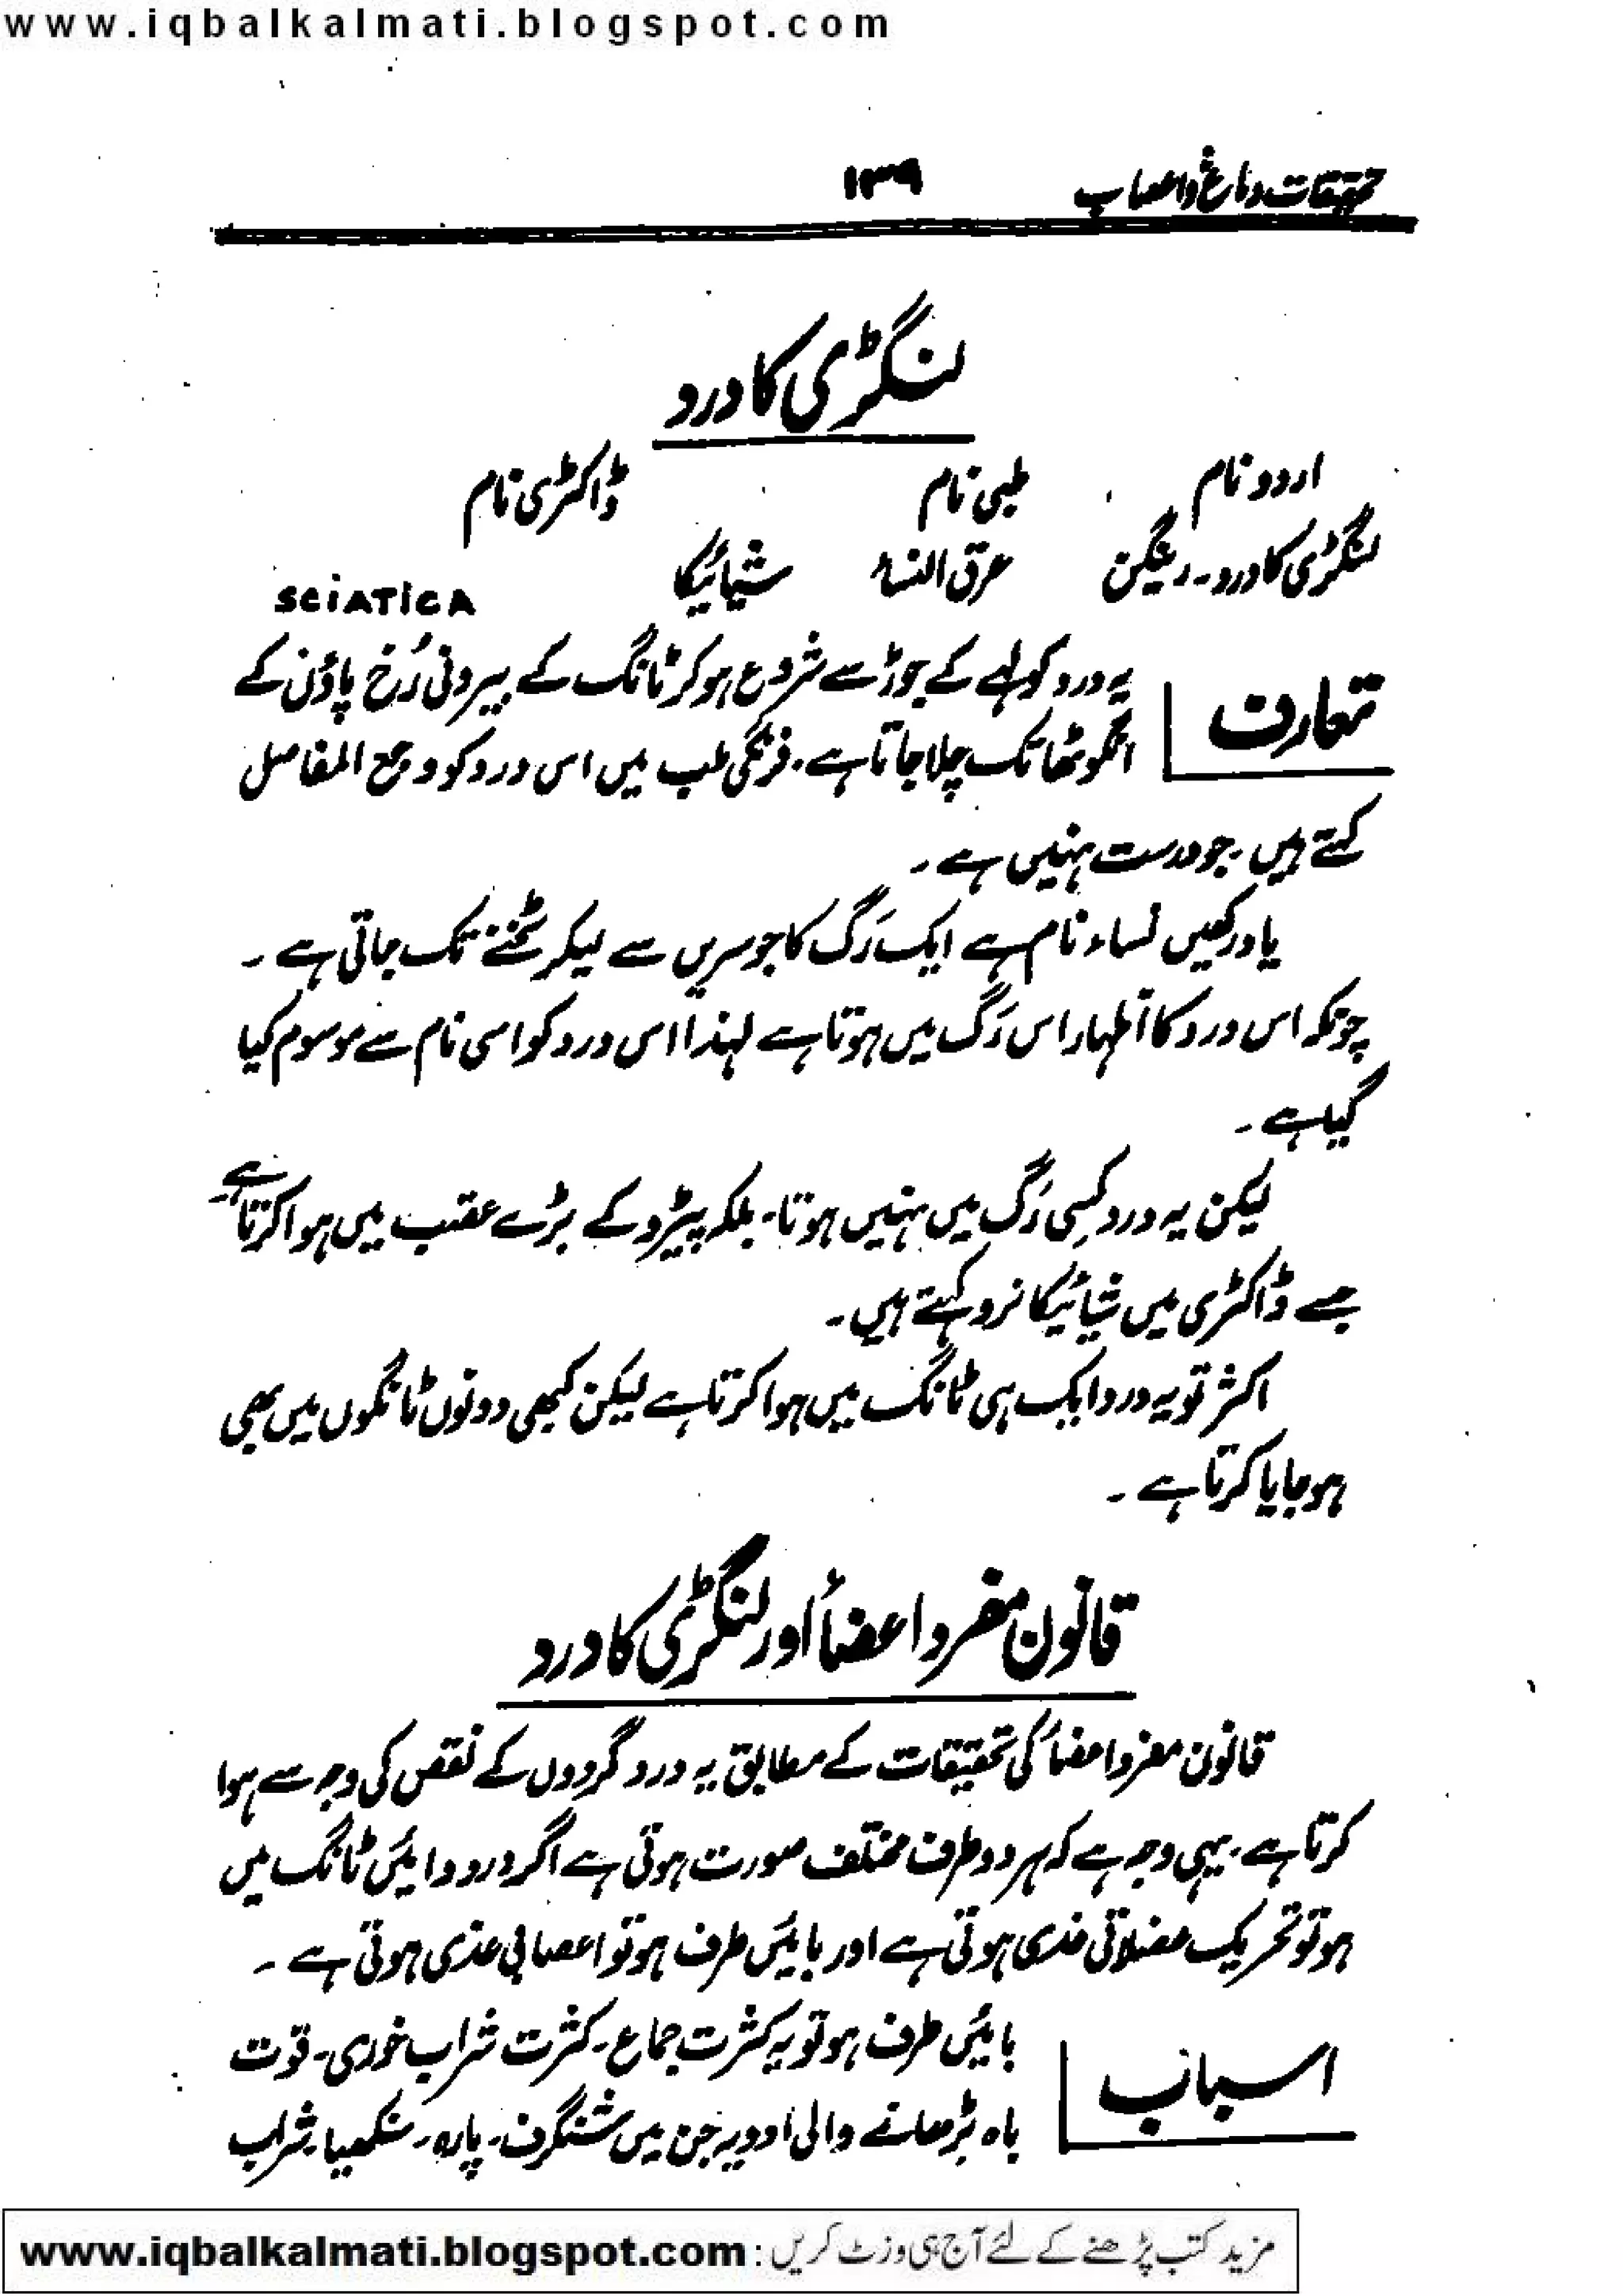 www.iqbalkalmati.blogspot.com
تحقیقات دماغ و اعصاب ۱۳۹
لنگڑی کا درد
اردو نام طبی نام ڈاکٹری نام
لنگڑی کا درد۔ رینگن عرق النساء شیاٹیکا SCIATICA
تعارف
یہ درد کولہے کے جوڑ سے شروع ہو کر ٹانگ کے بیرونی رُخ پاؤں کے
انگوٹھا تک چلا جاتا ہے۔ فرنگی طب میں اس درد کو وجع المفاصل
کہتے ہیں۔ جو درست نہیں ہے۔
یاد رکھیں نساء نام ہے ایک رَگ کا جو سرین سے لیکر ٹخنے تک جاتی ہے۔
چونکہ اس درد کا اظہار اس رَگ میں ہوتا ہے لہٰذا اس درد کو اسی نام سے موسوم کیا
گیا ہے۔
لیکن یہ درد کسی رَگ میں نہیں ہوتا۔ بلکہ پیڑو کے بڑے عقب میں ہوا کرتا ہے۔
جسے ڈاکٹری میں شیاٹیکا نرو کہتے ہیں۔
اکثر تو یہ درد ایک ہی ٹانگ میں ہوا کرتا ہے لیکن کبھی دونوں ٹانگوں میں بھی
ہو جایا کرتا ہے۔
قانون مفرد اعضأ اور لنگڑی کا درد
قانون مفرد اعضأ کی تحقیقات کے مطابق یہ درد گردوں کے نقص کی وجہ سے ہوا
کرتا ہے۔ یہی وجہ ہے کہ ہر دو طرف مختلف صورت ہوتی ہے اگر درد دائیں ٹانگ میں
ہو تو تحریک عضلاتی غدی ہوتی ہے اور بائیں طرف ہو تو اعصابی غدی ہوتی ہے۔
اسباب
بائیں طرف ہو تو یہ کثرت جماع۔ کثرت شراب خوری۔ قوّت
باہ بڑھانے والی ادویہ جن میں شنگرف۔ پارہ۔ سنکھیا۔ شراب
مزید کتب پڑھنے کے لئے آج ہی وزٹ کریں : www.iqbalkalmati.blogspot.com